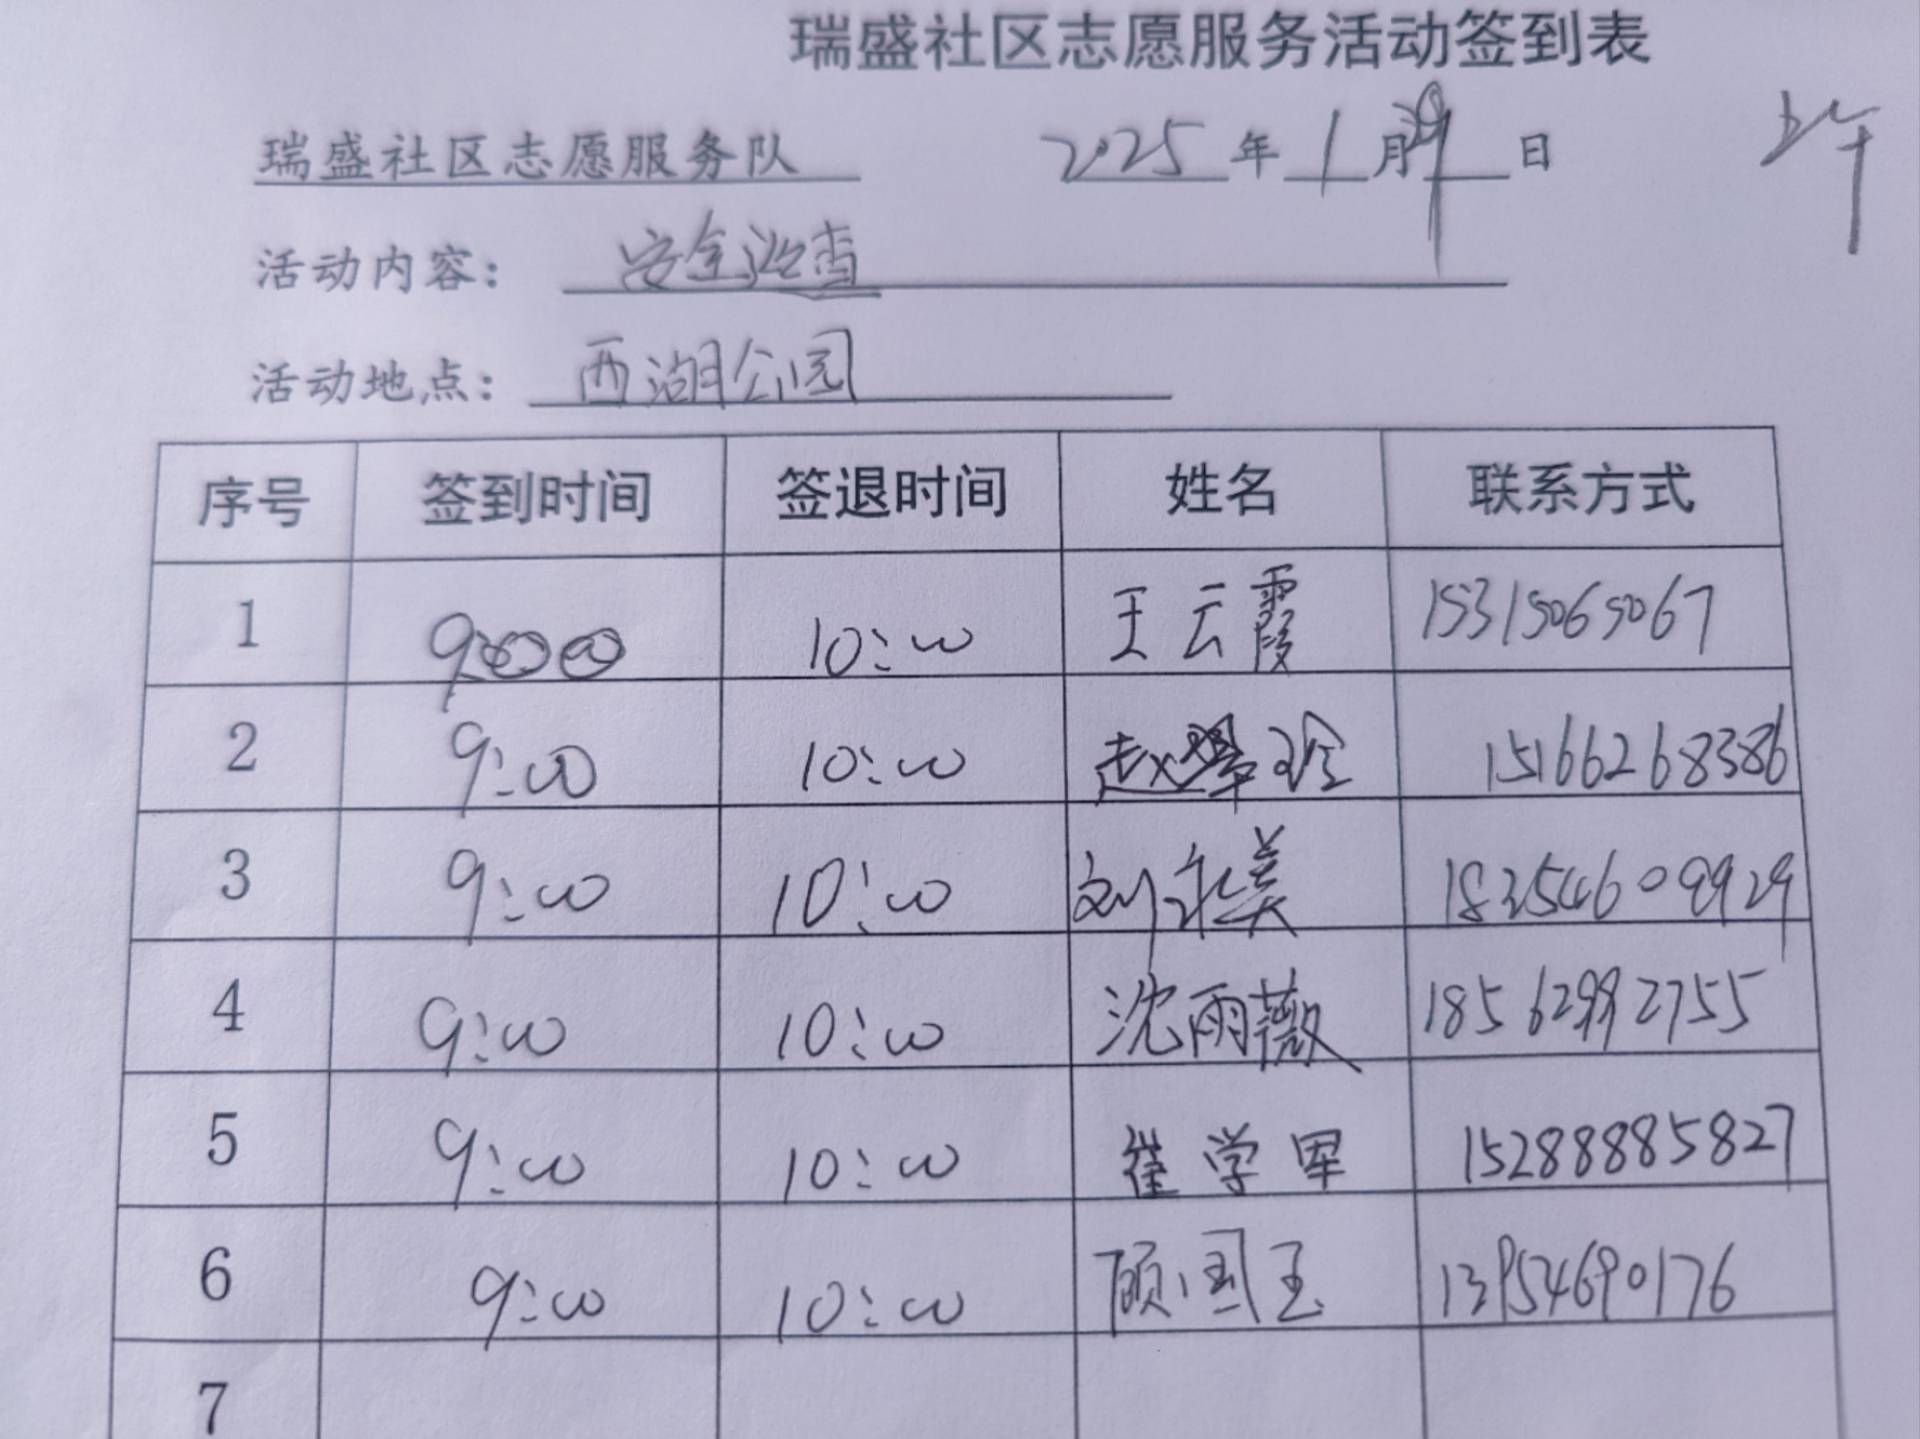 瑞盛社区志愿服务活动签到表
瑞盛社区志愿服务队 2025年1月 日 上午
活动内容： 安全巡查
活动地点： 西湖公园
序号 签到时间 签退时间 姓名 联系方式
1 9:00 10:00 王云霞 15315065067
2 9:00 10:00 赵翠珍 15166268386
3 9:00 10:00 刘永美 18254609929
4 9:00 10:00 沈雨薇 18562992755
5 9:00 10:00 崔学军 15288885827
6 9:00 10:00 顾国玉 13954690176
7